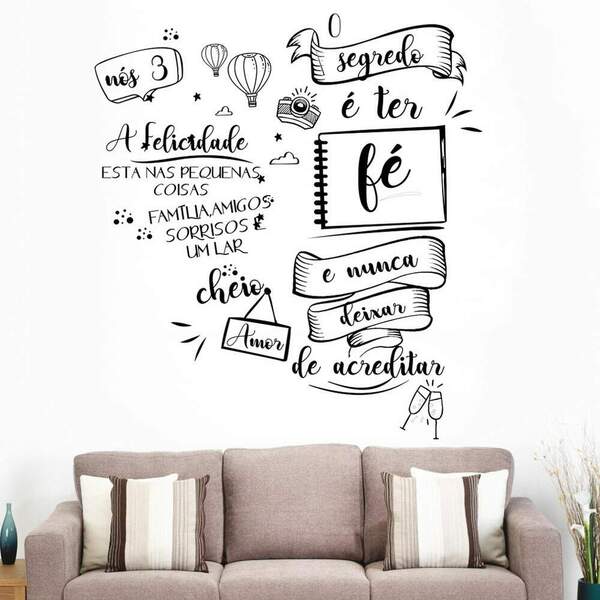 nós 3
A Felicidade
ESTA NAS PEQUENAS
COISAS
FAMTLIA,AMIGOS
SORRISOS E
UM LAR
cheio
Amor
O
segredo
é ter
fé
e nunca
deixar
de acreditar